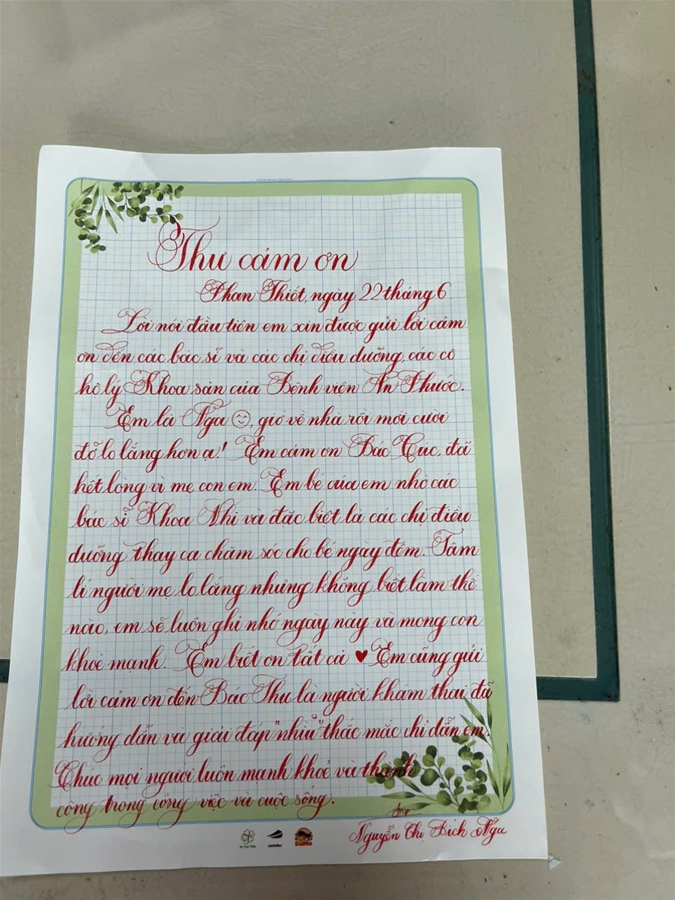 Thư cám ơn
Phan Thiết, ngày 22 tháng 6
Lời nói đầu tiên em xin được gửi lời cảm
ơn đến các bác sĩ và các chị điều dưỡng, các cô
hộ lý Khoa sản của Bệnh viện An Phước.
Em là Nga, giờ về nhà rồi mới cười
đỡ lo lắng hơn ạ! Em cám ơn Bác Cúc, đã
hết lòng vì mẹ con em. Em bé của em nhờ các
bác sĩ Khoa Nhi và đặc biệt là các chị điều
dưỡng thay ca chăm sóc cho bé ngày đêm. Tâm
lí người mẹ lo lắng nhưng không biết làm thế
nào, em sẽ luôn ghi nhớ ngày này và mong con
khoẻ mạnh. Em biết ơn tất cả ♥ Em cũng gửi
lời cảm ơn đến Bác Thu là người khám thai đã
hướng dẫn và giải đáp "nhìu" thắc mắc chỉ dẫn em.
Chúc mọi người luôn mạnh khoẻ và thành
công trong công việc và cuộc sống.
Nguyễn Thị Bích Nga